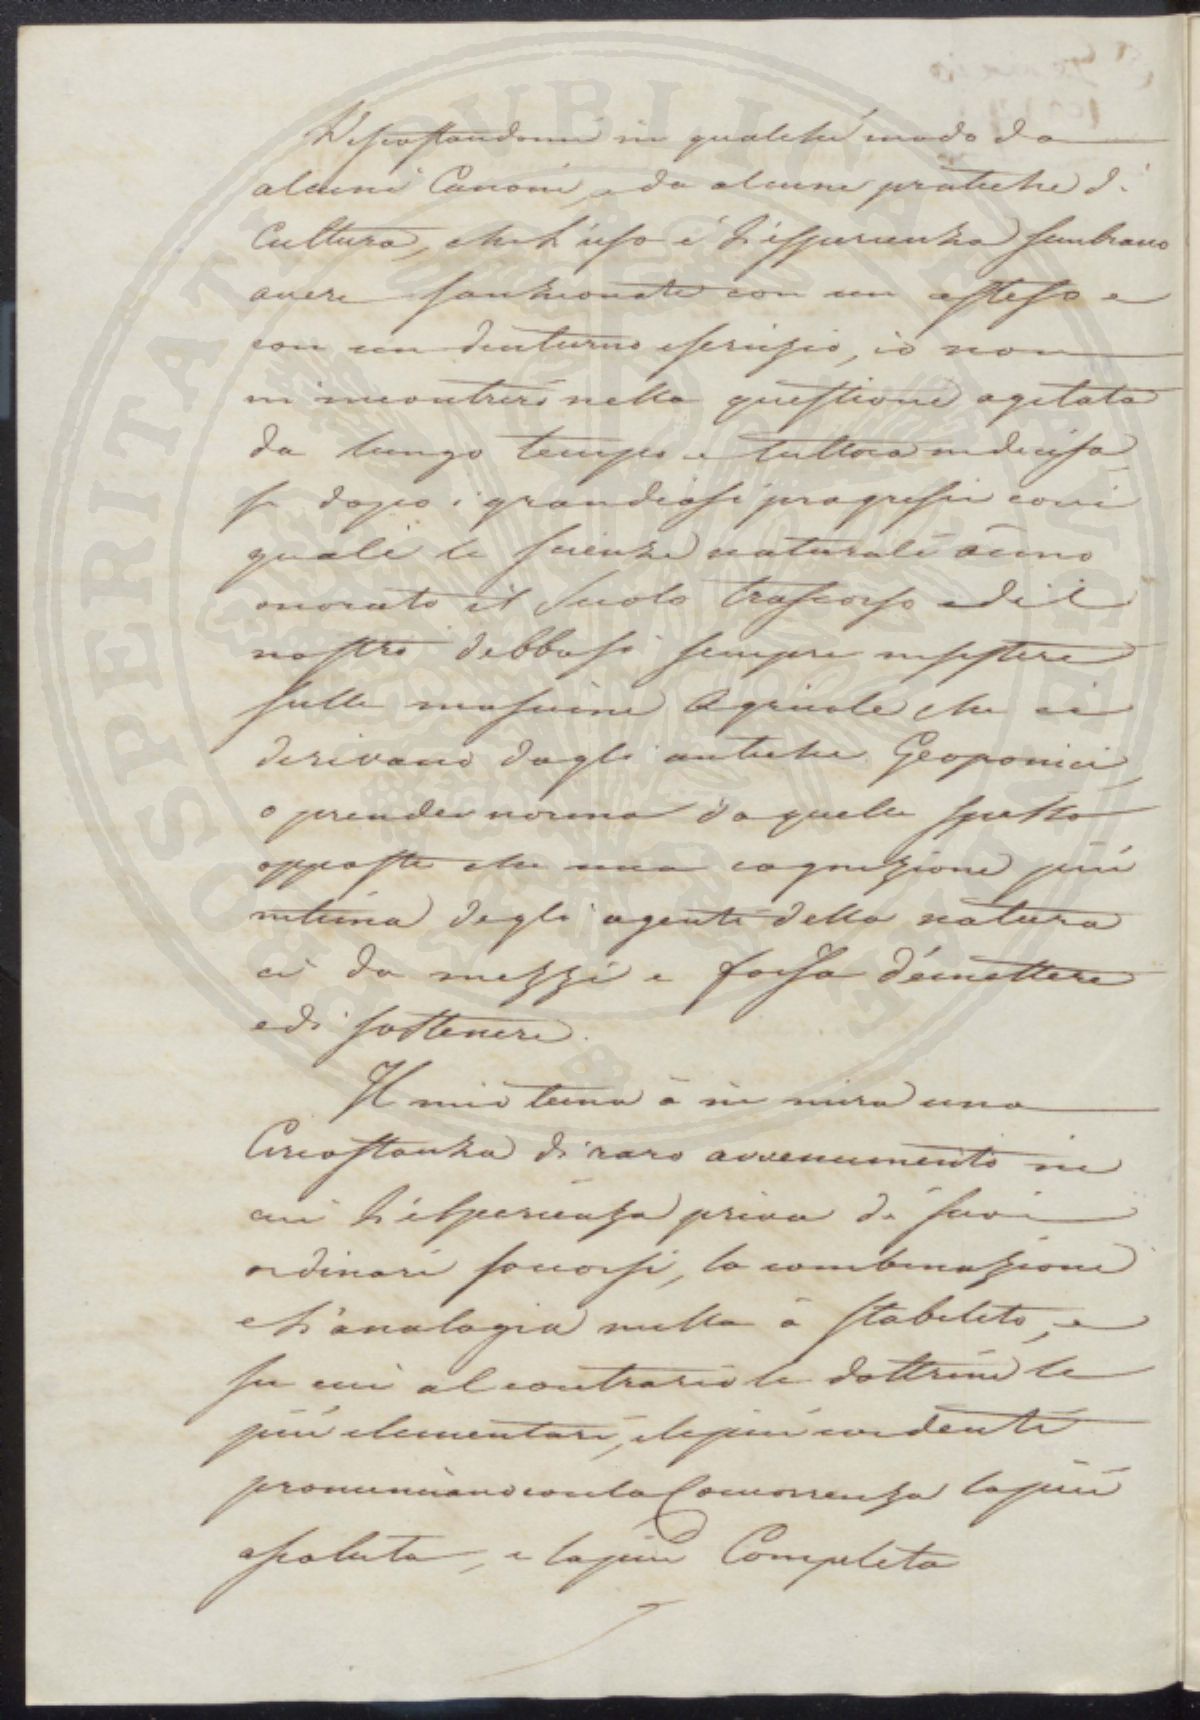 Discostandomi in qualche modo da
alcuni Canoni, e da alcune pratiche di
Cultura, che l'uso e l'esperienza sembrano
avere sanzionate con un esteso e
con un diuturno eserizio, io non
m'incontrerò nella questione agitata
da lungo tempo e tuttora indecisa
se dopo i grandiosi progressi coi
quali le scienze naturali ànno
onorato il secolo trascorso ed il
nostro debbasi sempre insistere
sulle massime Agricole che ci
derivano dagli antichi Geoponici,
o prender norma da quelle spesso
opposte che una cognizione più
intima degli agenti della natura
ci da mezzi e forza d'emettere
e di sostenere.
Il mio tema à in mira una
Circostanza di raro avvenimento in
cui l'esperienza priva di suoi
ordinari soccorsi, la combinazione
e l'analogia nulla à stabilito, e
su cui al contrario le dottrine le
più elementari, e le più evidenti
pronunciano con la Concorrenza la più
assoluta, e la più Completa
PROSPERITATI PUBLICAE AUGENDAE